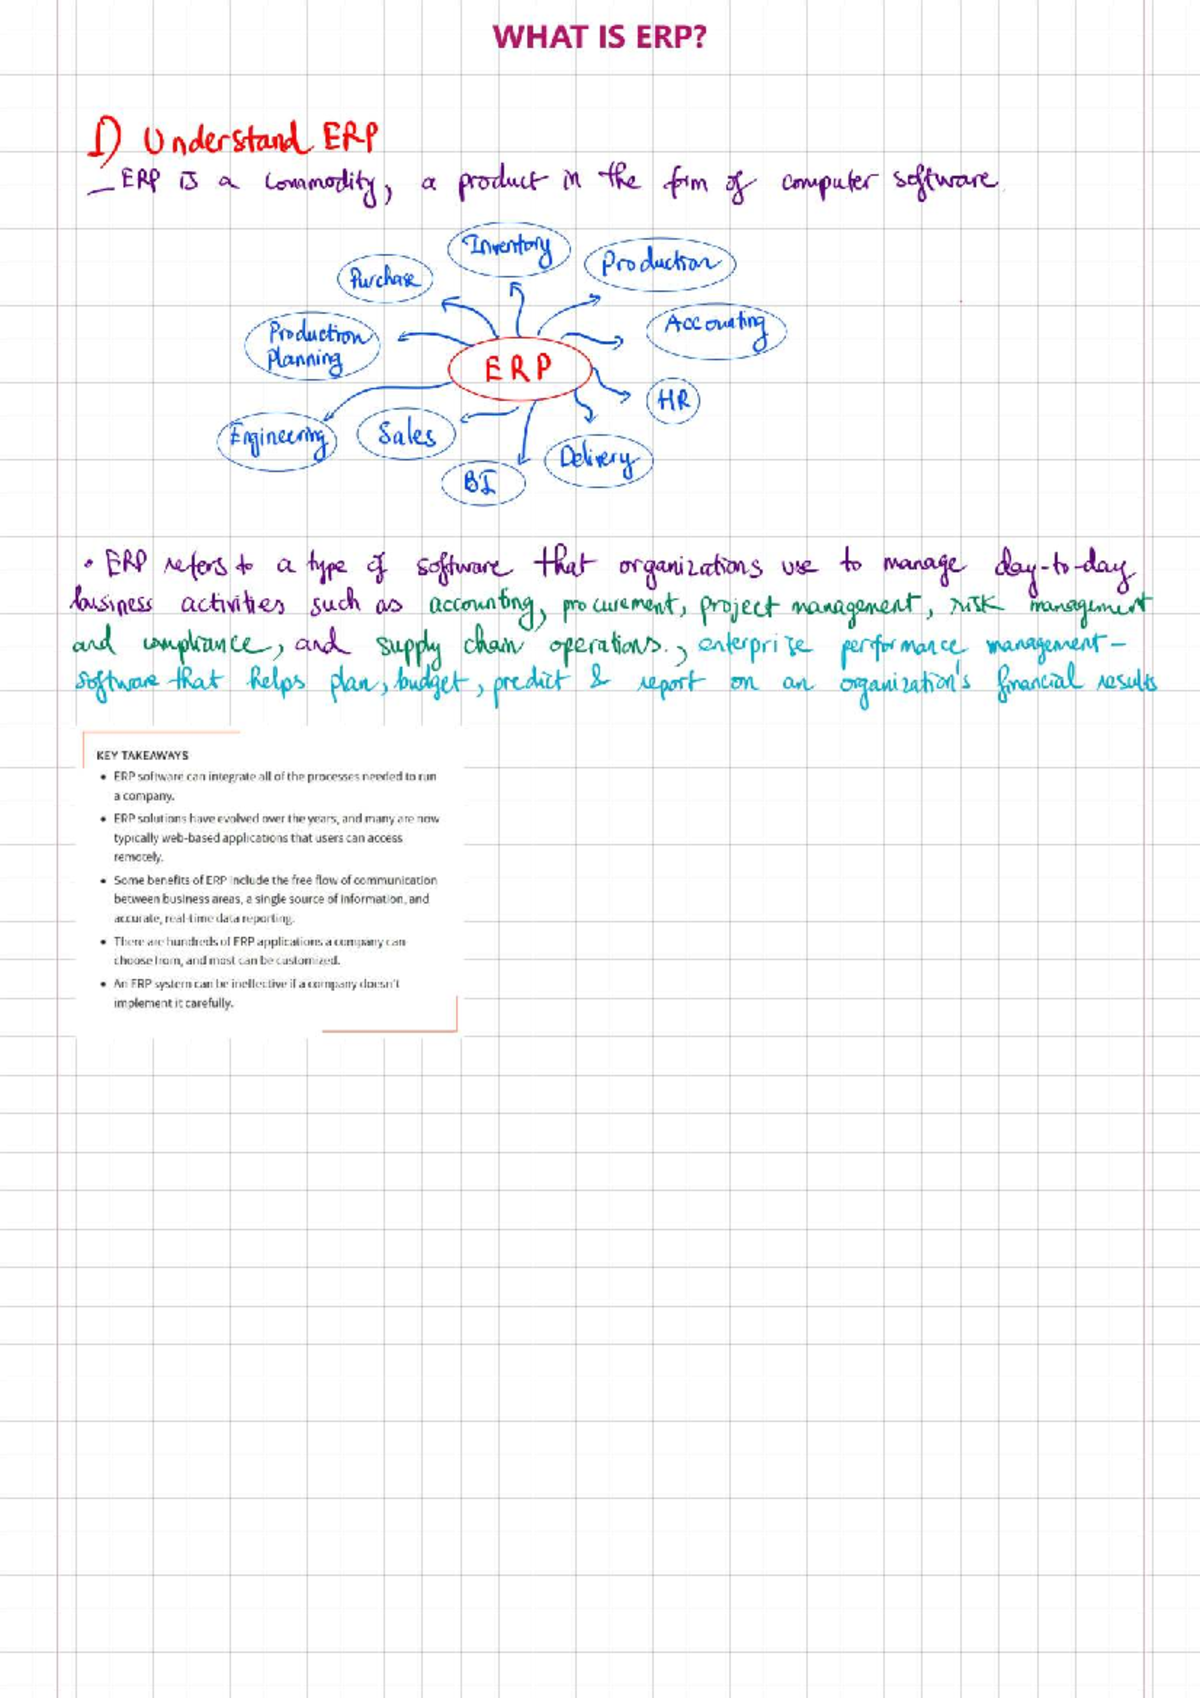 WHAT IS ERP?
1) Understand ERP
– ERP is a commodity, a product in the form of computer software.
Inventory
Purchase
Production
Production
Planning
Accounting
ERP
HR
Engineering
Sales
Delivery
BI
• ERP refers to a type of software that organizations use to manage day-to-day
business activities such as accounting, procurement, project management, risk management
and compliance, and supply chain operations., enterprise performance management –
software that helps plan, budget, predict & report on an organization's financial results
KEY TAKEAWAYS
• ERP software can integrate all of the processes needed to run
a company.
• ERP solutions have evolved over the years, and many are now
typically web-based applications that users can access
remotely.
• Some benefits of ERP include the free flow of communication
between business areas, a single source of information, and
accurate, real-time data reporting.
• There are hundreds of ERP applications a company can
choose from, and most can be customized.
• An ERP system can be ineffective if a company doesn't
implement it carefully.